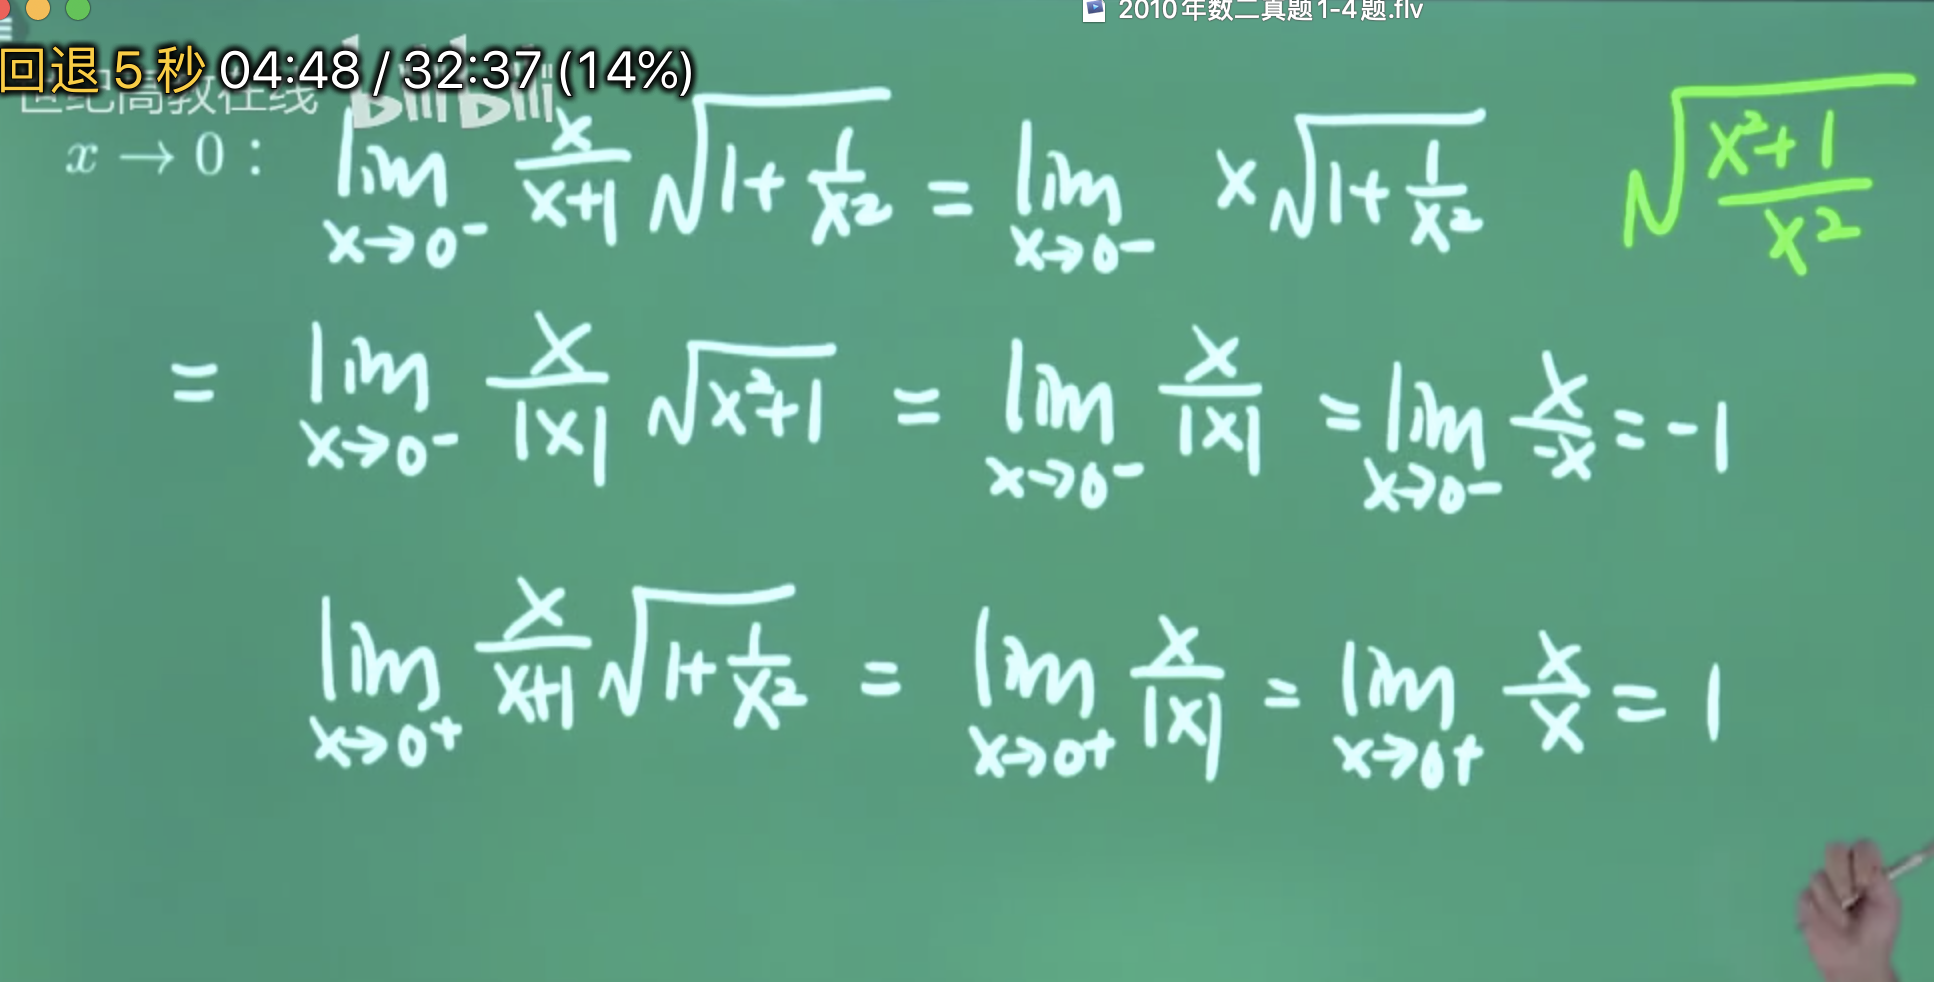 2010年数二真题1-4题.flv
回退 5 秒 04:48 / 32:37 (14%)
世纪高教在线 bilibili
x → 0 : lim x→0⁻ x/(x+1) √(1+1/x²) = lim x→0⁻ x√(1+1/x²) √((x²+1)/x²)
= lim x→0⁻ x/|x| √(x²+1) = lim x→0⁻ x/|x| = lim x→0⁻ x/-x = -1
lim x→0⁺ x/(x+1) √(1+1/x²) = lim x→0⁺ x/|x| = lim x→0⁺ x/x = 1